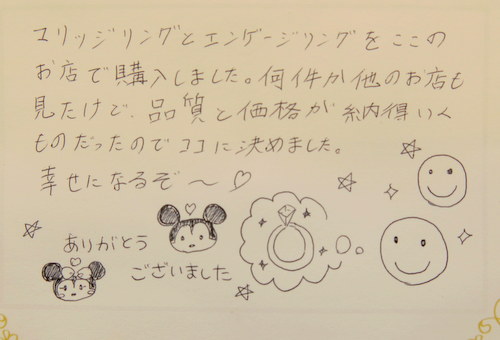 マリッジリングとエンゲージリングをここの
お店で購入しました。何件か他のお店も
見たけど、品質と価格が納得いく
ものだったのでココに決めました。
幸せになるぞ〜♡
ありがとう
ございました